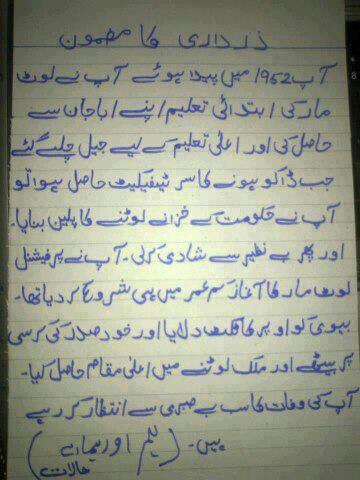 ذرداری کا مضمون
آپ 1952 میں پیدا ہوئے آپ نے لوٹ
مار کی ابتدائی تعلیم اپنے اباجان سے
حاصل کی اور اعلیٰ تعلیم کے لیے جیل چلے گئے
جب ڈاکو ہونے کا سرٹیفیکیٹ حاصل ہوا تو
آپ نے حکومت کے خزانے لوٹنے کا پلین بنایا۔
اور پھر بے نظیر سے شادی کرلی۔ آپ نے پرفیشنل
لوٹ مار کا آغاز کم عمر میں ہی شروع کر دیا تھا۔
بیوی کو اوپر کا ٹکٹ دلایا اور خود صدر کی کرسی
پر بیٹھے اور ملک لوٹنے میں اعلیٰ مقام حاصل کیا۔
آپ کی وفات کا سب بے صبری سے انتظار کر رہے
ہیں۔ ( اور ہمارے
حالات )